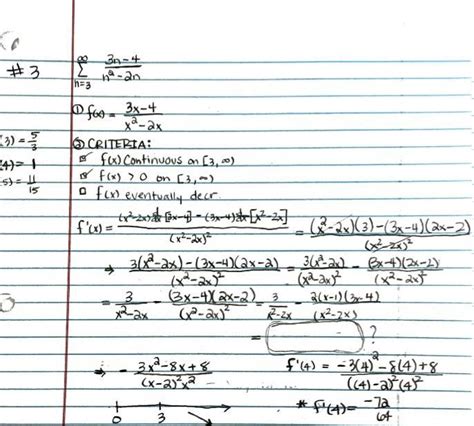 #3 ∑_{n=3}^{∞} (3n-4)/(n²-2n)
① f(x) = (3x-4)/(x²-2x)
② CRITERIA:
(3) = 5/3
☑ f(x) continuous on [3,∞)
(4) = 1
☑ f(x) > 0 on [3,∞)
(5) = 11/15
☐ f(x) eventually decr.
f'(x) = ((x²-2x) [3x-4] - (3x-4) [x²-2x])/(x²-2x)² = ((x²-2x)(3)-(3x-4)(2x-2))/(x²-2x)²
→ (3(x²-2x)-(3x-4)(2x-2))/(x²-2x)² = 3(x²-2x)/(x²-2x)² - (3x-4)(2x-2)/(x²-2x)²
= 3/(x²-2x) - (3x-4)(2x-2)/(x²-2x)² = 3/(x²-2x) - 2(x-1)(3x-4)/(x²-2x)
= ?
→ - (3x²-8x+8)/((x-2)²x²) f'(4) = (-3(4)²-8(4)+8)/((4)-2)²(4)²
* f'(4) = -72/64
0 3